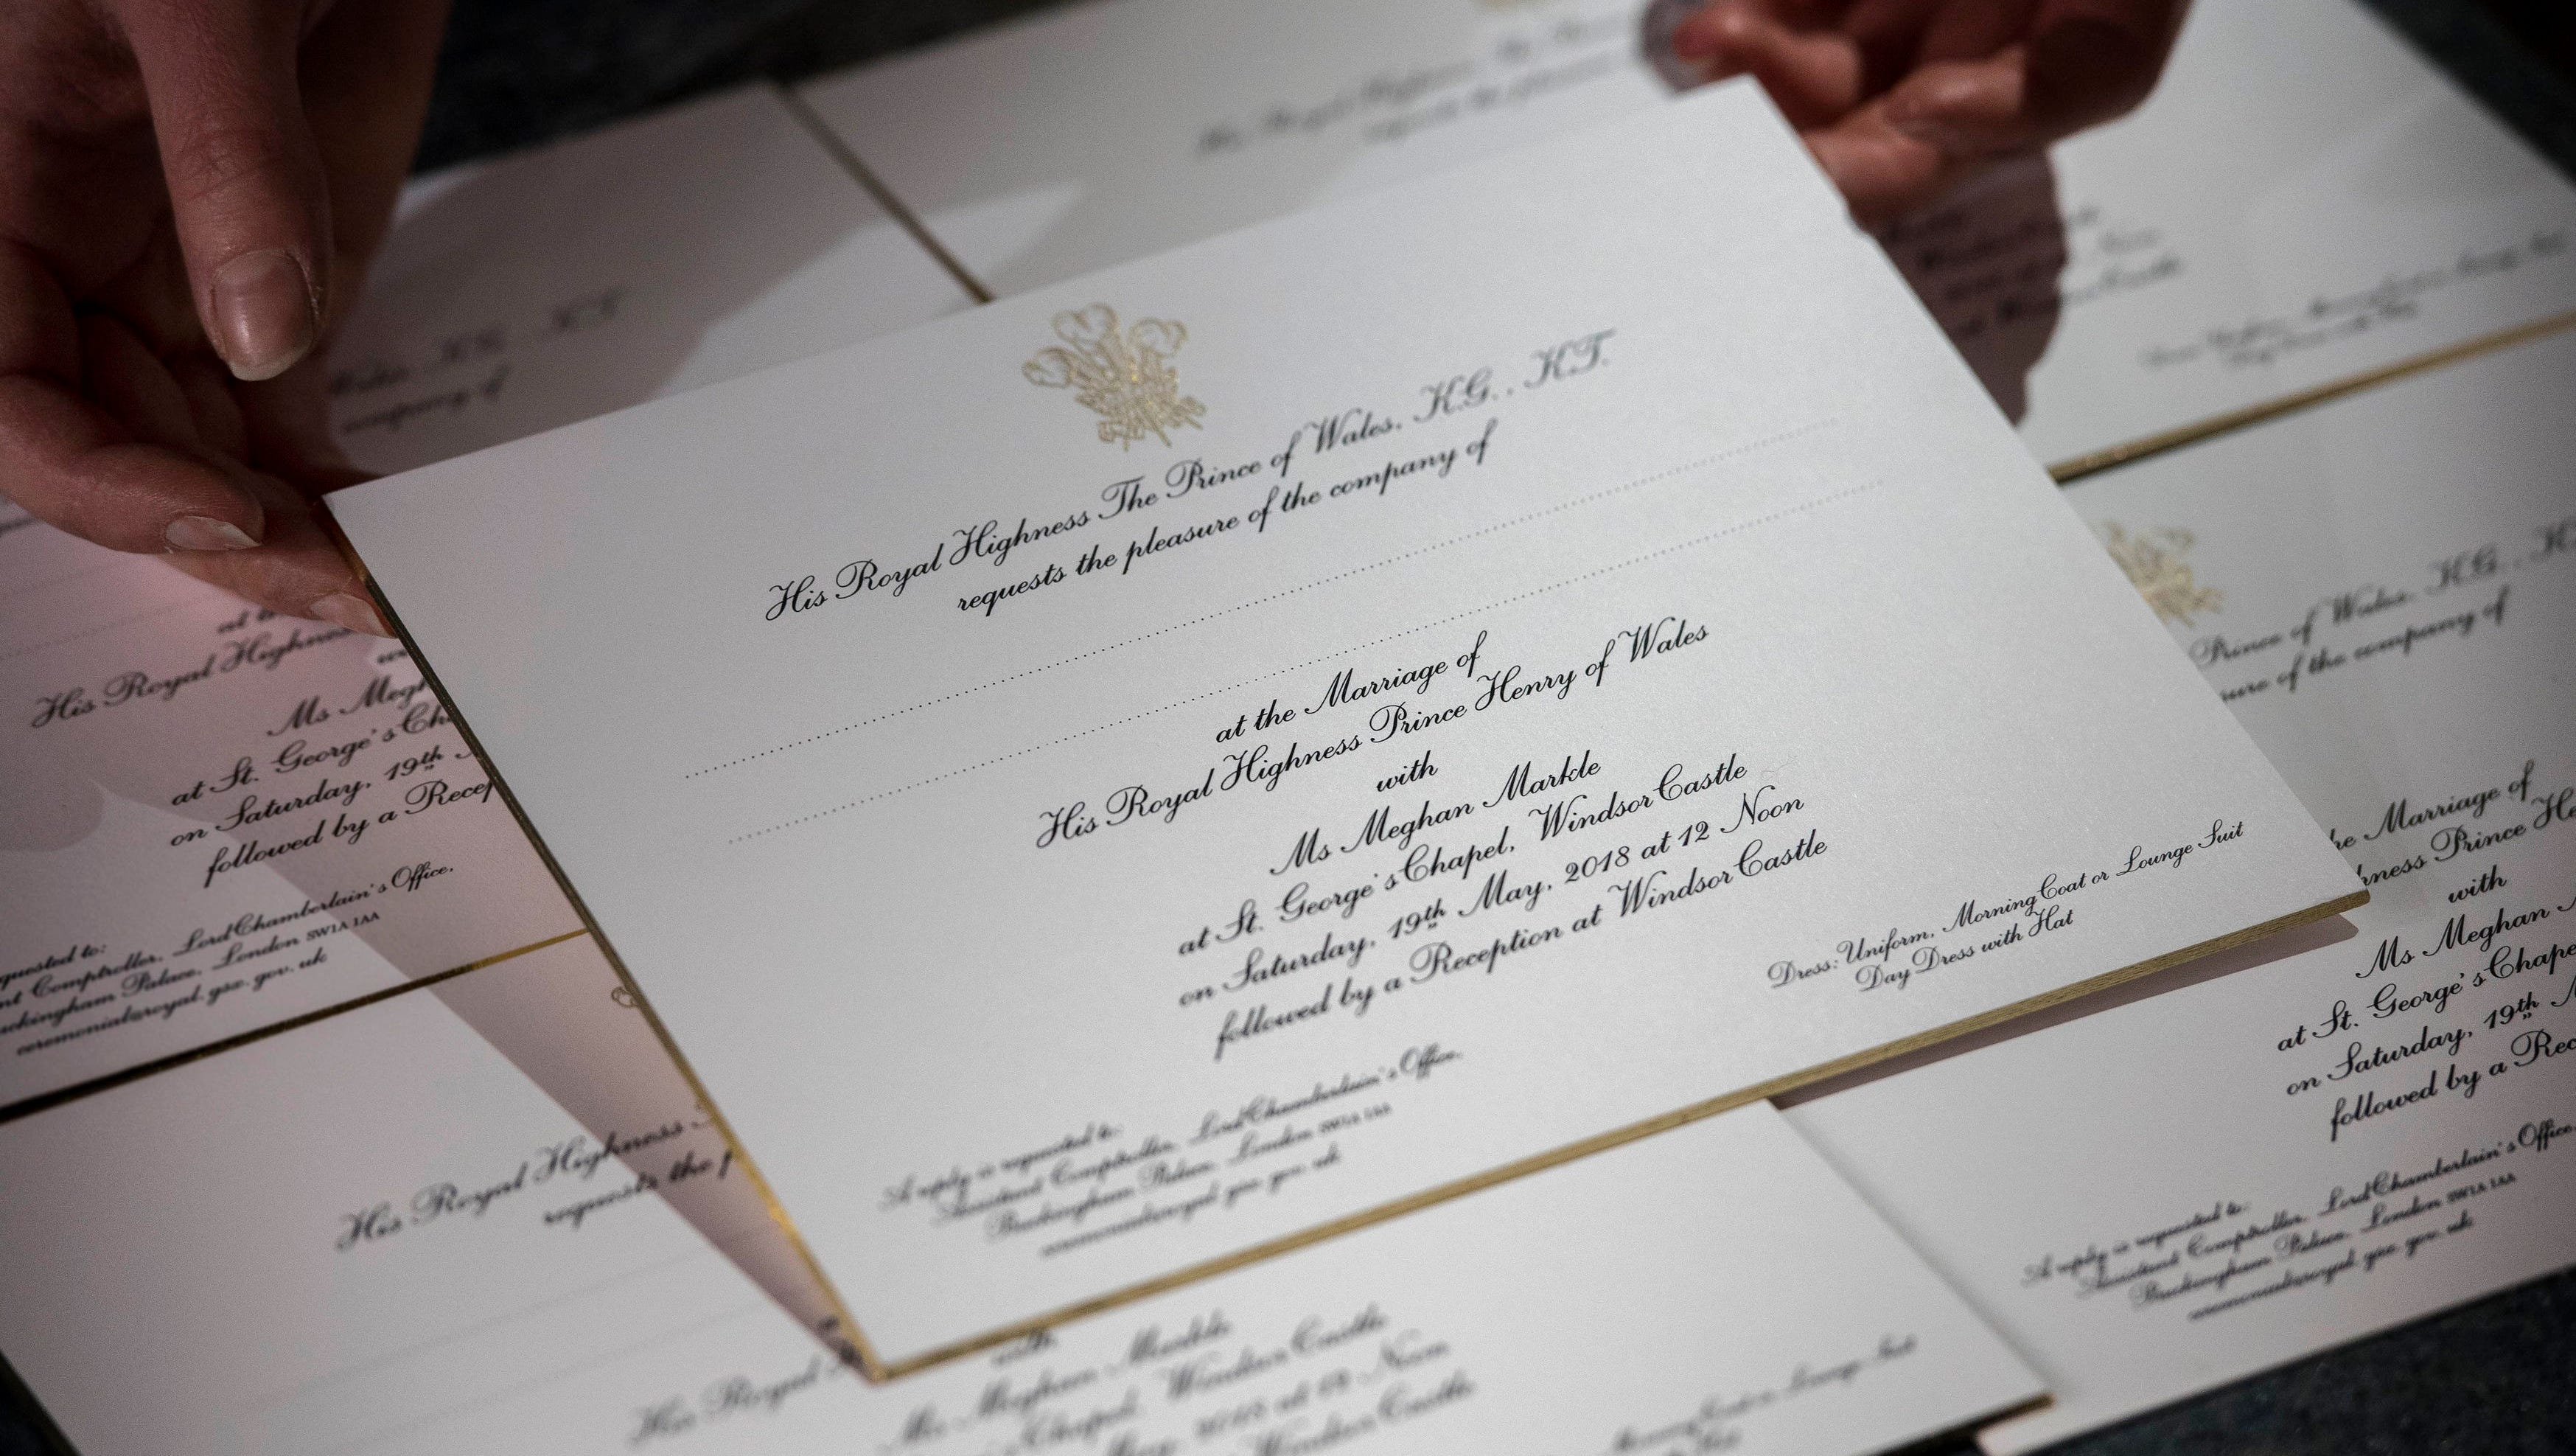 His Royal Highness The Prince of Wales, K.G., K.T.
requests the pleasure of the company of
at the Marriage of
His Royal Highness Prince Henry of Wales
with
Ms Meghan Markle
at St. George's Chapel, Windsor Castle
on Saturday, 19th May, 2018 at 12 Noon
followed by a Reception at Windsor Castle
Dress: Uniform, Morning Coat or Lounge Suit
Day Dress with Hat
A reply is requested to:
Assistant Comptroller, Lord Chamberlain's Office,
Buckingham Palace, London SW1A 1AA
K.T.
company of
at th
His Royal Highness
Ms Megh
at St. George's Ch
on Saturday, 19th
followed by a Recep
quested to:
nt Comptroller, Lord Chamberlain's Office,
uckingham Palace, London SW1A 1AA
His Royal Highness
requests the p
His Royal
with
Ms Meghan Markle
Chapel, Windsor Castle
Noon
Windsor Castle
Prince of Wales, K.G., K.
sure of the company of
he Marriage of
hness Prince He
with
Ms Meghan
at St. George's Chape
on Saturday, 19th
followed by a Rec
A reply is requested to:
Assistant Comptroller, Lord Chamberlain's Office,
Buckingham Palace, London SW1A 1AA